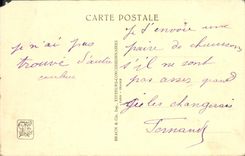 CARTE POSTALE
je n'ai pas
trouvé d'autre
couleur
BRAUN & Cie, Imp. ÉDITEURS-CONCESSIONNAIRES
Je t'envoie une
paire de chaussons
s'il ne sont
pas assez grand
je les changerais
Fernand